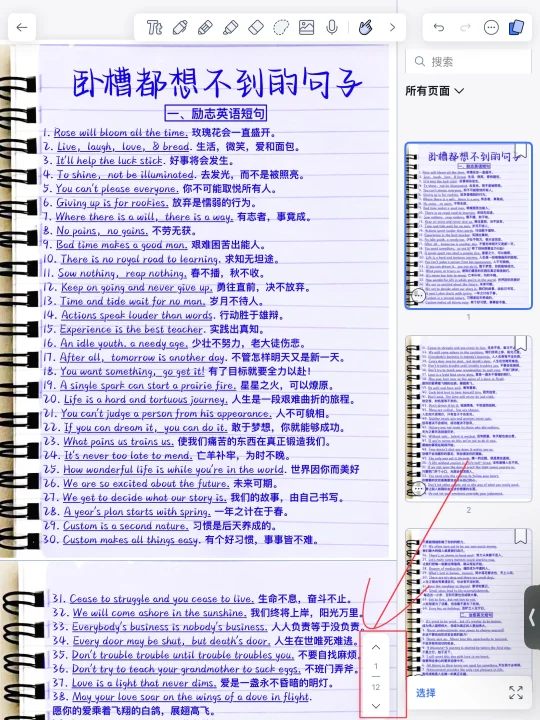 搜索
所有页面
卧槽都想不到的句子
一、励志英语短句
1. Rose will bloom all the time. 玫瑰花会一直盛开。
2. Live, laugh, love, & bread. 生活，微笑，爱和面包。
3. It'll help the luck stick. 好事将会发生。
4. To shine, not be illuminated. 去发光，而不是被照亮。
5. You can't please everyone. 你不可能取悦所有人。
6. Giving up is for rookies. 放弃是懦弱的行为。
7. Where there is a will, there is a way. 有志者，事竟成。
8. No pains, no gains. 不劳无获。
9. Bad time makes a good man. 艰难困苦出能人。
10. There is no royal road to learning. 求知无坦途。
11. Sow nothing, reap nothing. 春不播，秋不收。
12. Keep on going and never give up. 勇往直前，决不放弃。
13. Time and tide wait for no man. 岁月不待人。
14. Actions speak louder than words. 行动胜于雄辩。
15. Experience is the best teacher. 实践出真知。
16. An idle youth, a needy age. 少壮不努力，老大徒伤悲。
17. After all, tomorrow is another day. 不管怎样明天又是新一天。
18. You want something, go get it! 有了目标就要全力以赴！
19. A single spark can start a prairie fire. 星星之火，可以燎原。
20. Life is a hard and tortuous journey. 人生是一段艰难曲折的旅程。
21. You can't judge a person from his appearance. 人不可貌相。
22. If you can dream it, you can do it. 敢于梦想，你就能够成功。
23. What pains us trains us. 使我们痛苦的东西在真正锻造我们。
24. It's never too late to mend. 亡羊补牢，为时不晚。
25. How wonderful life is while you're in the world. 世界因你而美好
26. We are so excited about the future. 未来可期。
27. We get to decide what our story is. 我们的故事，由自己书写。
28. A year's plan starts with spring. 一年之计在于春。
29. Custom is a second nature. 习惯是后天养成的。
30. Custom makes all things easy. 有个好习惯，事事皆不难。
31. Cease to struggle and you cease to live. 生命不息，奋斗不止。
32. We will come ashore in the sunshine. 我们终将上岸，阳光万里。
33. Everybody's business is nobody's business. 人人负责等于没负责。
34. Every door may be shut, but death's door. 人生在世唯死难逃。
35. Don't trouble trouble until trouble troubles you. 不要自找麻烦。
36. Don't try to teach your grandmother to suck eggs. 不班门弄斧。
37. Love is a light that never dims. 爱是一盏永不昏暗的明灯。
38. May your love soar on the wings of a dove in flight.
愿你的爱乘着飞翔的白鸽，展翅高飞。
1
12
1
2
选择